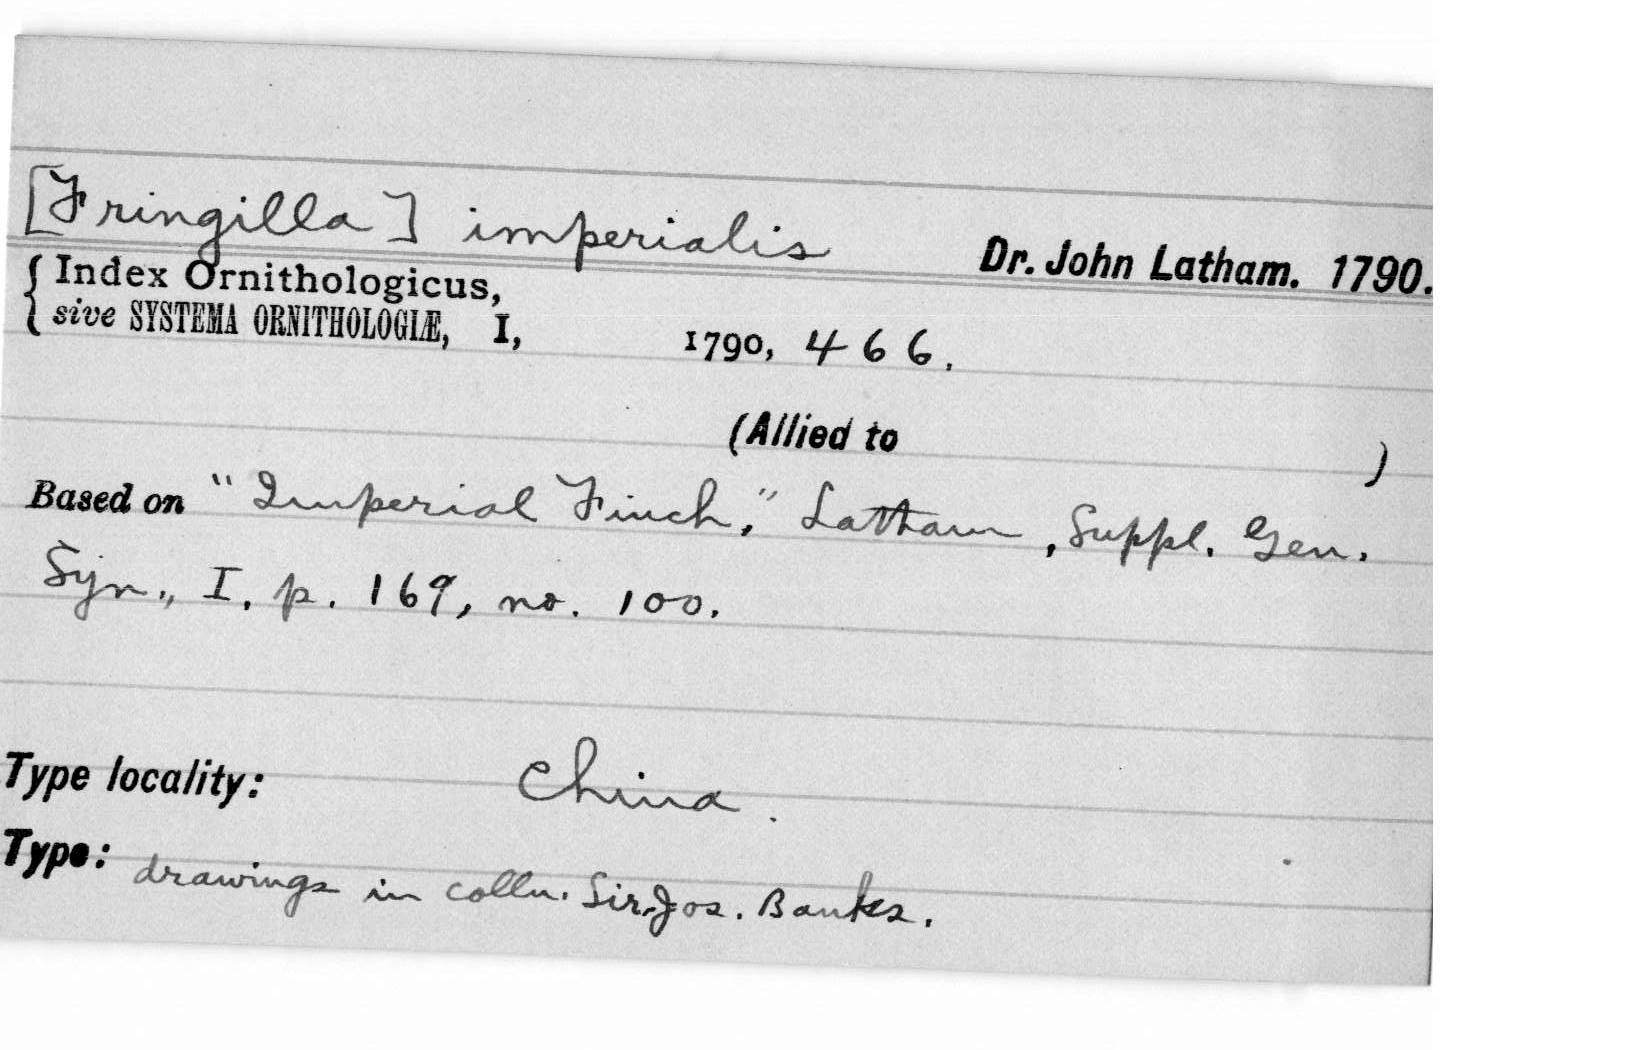 [Fringilla] imperialis Dr. John Latham. 1790.
{ Index Ornithologicus,
sive SYSTEMA ORNITHOLOGIÆ, I, 1790, 466.
(Allied to )
Based on "Imperial Finch," Latham, Suppl. Gen.
Syn., I, p. 169, no. 100.
Type locality: China.
Type: drawings in colln. Sir Jos. Banks.